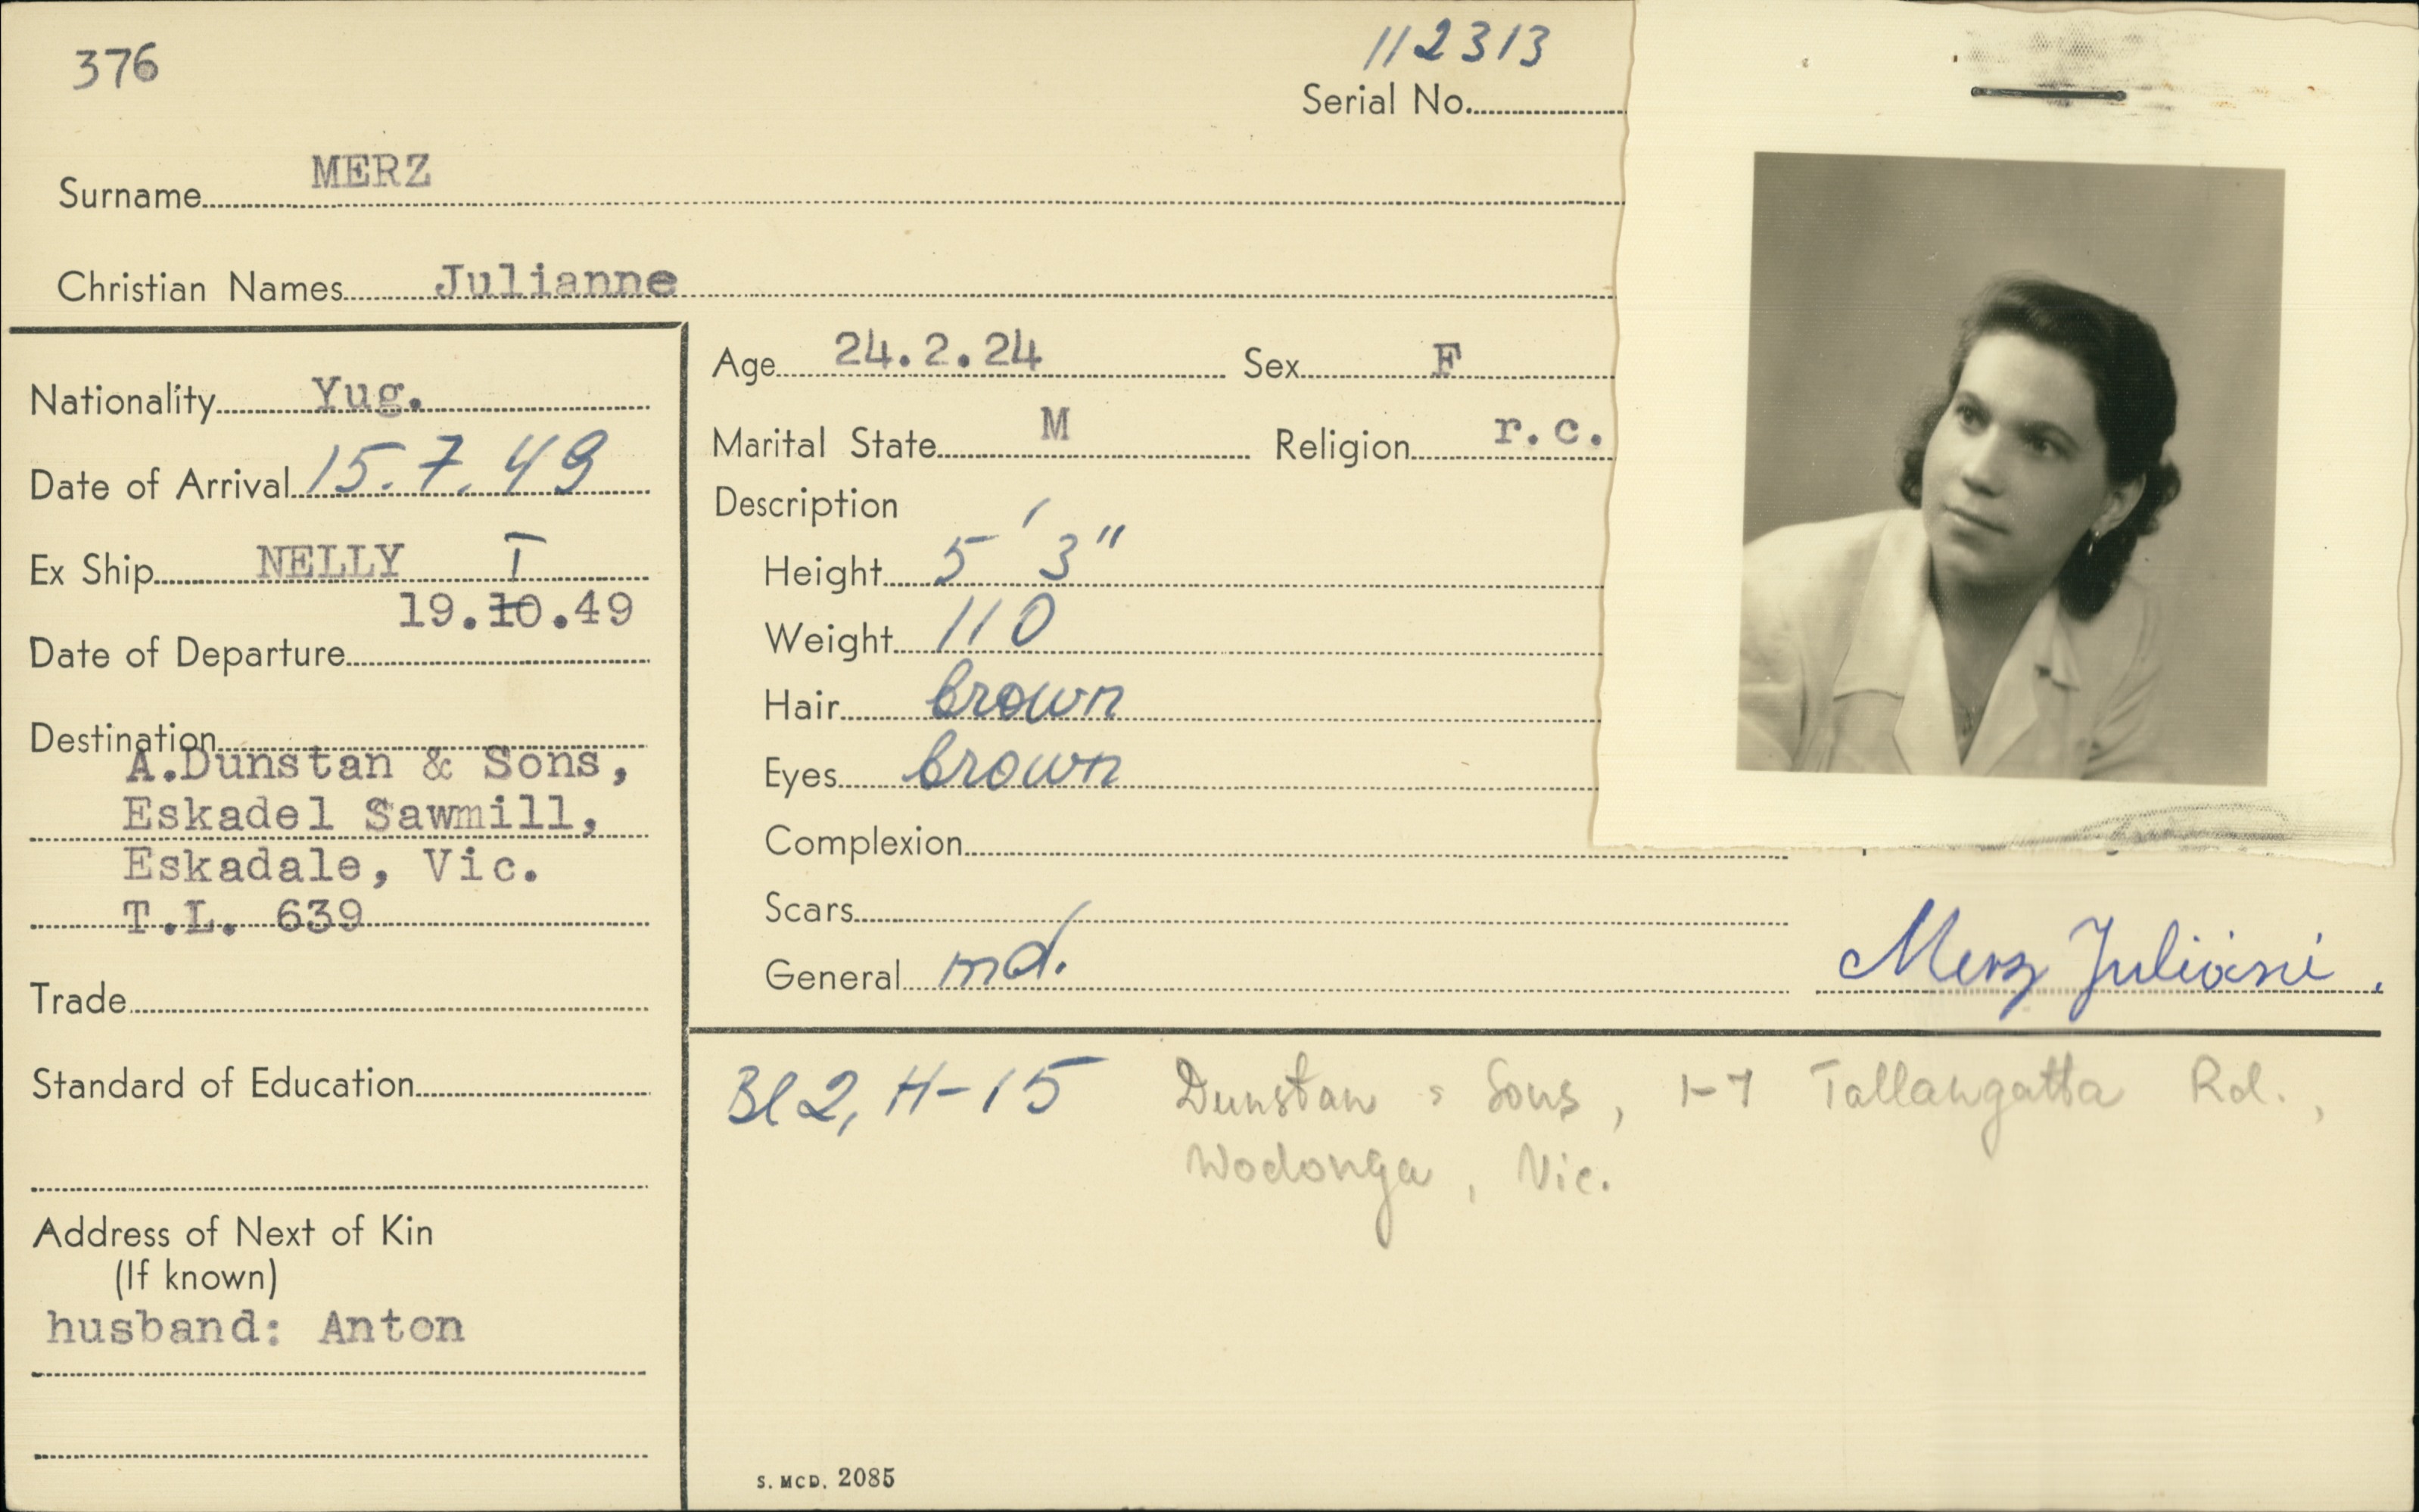 376
112313
Serial No.
Surname MERZ
Christian Names Julianne
Nationality Yug.
Date of Arrival 15.7.49
Ex Ship NELLY I
19.10.49
Date of Departure
Destination
A.Dunstan & Sons,
Eskadel Sawmill,
Eskadale, Vic.
T.L. 639
Trade
Standard of Education
Address of Next of Kin
(If known)
husband: Anton
Age 24.2.24 Sex F
Marital State M Religion r.c.
Description
Height 5' 3"
Weight 110
Hair brown
Eyes brown
Complexion
Scars
General md.
Merz
Bl 2, H-15 Dunstan & Sons, 1-7 Tallangatta Rd.,
Wodonga, Vic.
S. MCD. 2085